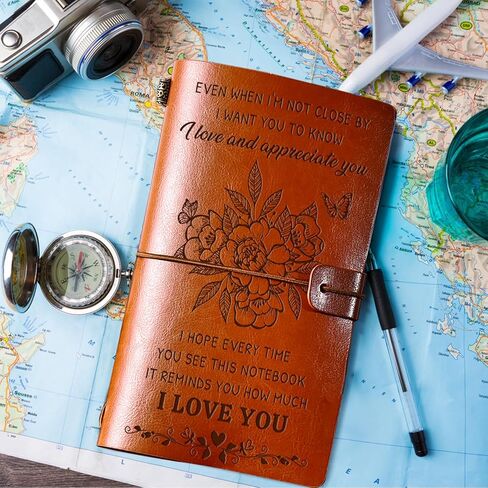 EVEN WHEN I'M NOT CLOSE BY
I WANT YOU TO KNOW
I love and appreciate you
I HOPE EVERY TIME
YOU SEE THIS NOTEBOOK
IT REMINDS YOU HOW MUCH
I LOVE YOU
ROMA